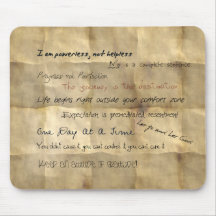 I am powerless, not helpless
No is a complete sentence
Progress not Perfection
The journey is that destination
Life begins right outside your comfort zone
Expectation is premeditated resentment
One Day At A Time
Let go and Let God
You didn't cause it you can't control it you can't cure it
Keep an attitude of gratitude!